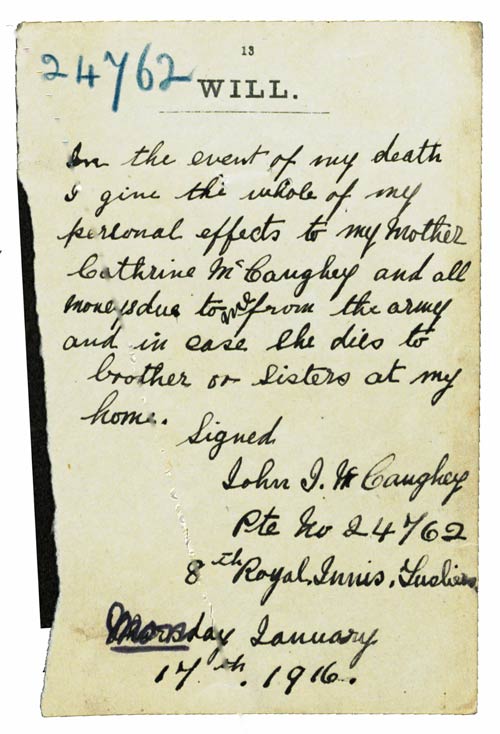 13
24762
WILL.
In the event of my death
I give the whole of my
personal effects to my Mother
Cathrine McCaughey and all
moneys due to me from the army
and in case she dies to
brother or Sisters at my
home.
Signed
John J. McCaughey
Pte No 24762
8th Royal. Innis. Fusliers.
Monday January
17th. 1916.